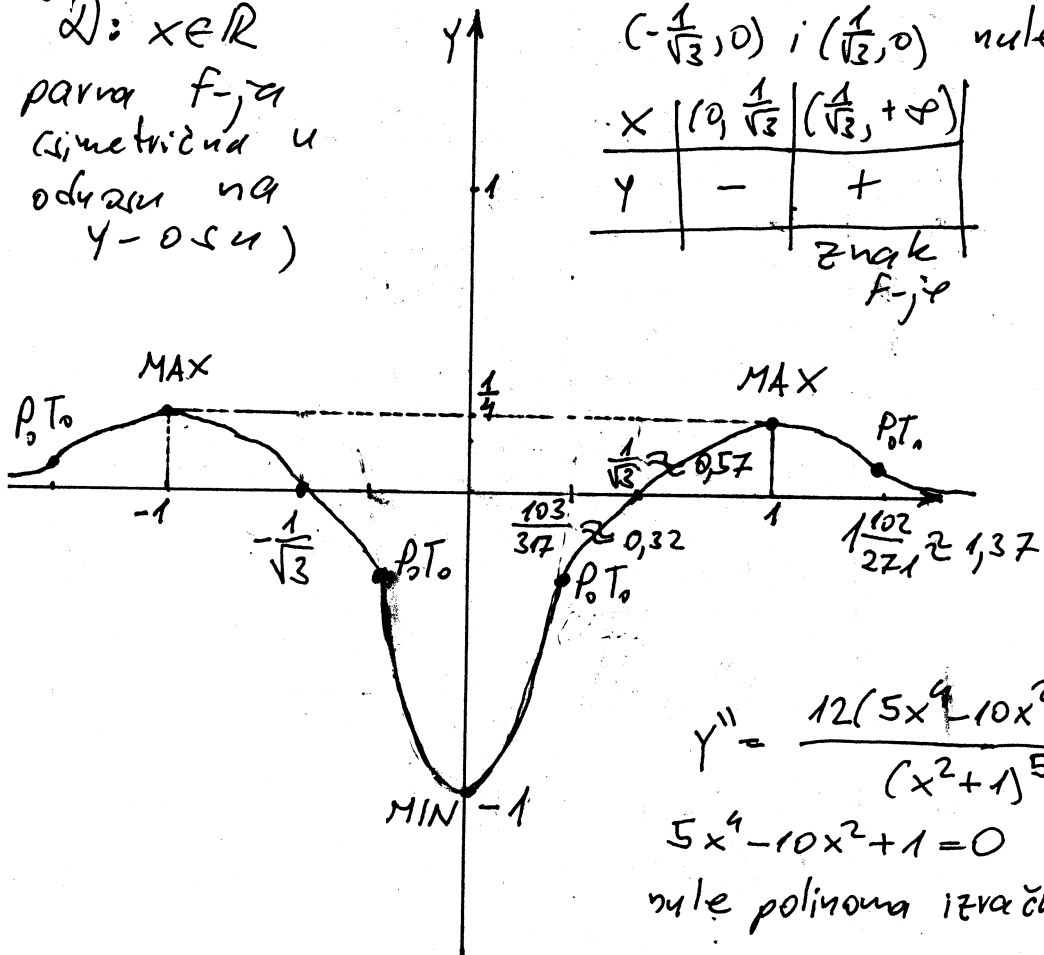 D: x∈ℝ
parna f-ja
(simetrična u
odnosu na
y-osu)
Y
(-1/√3, 0) i (1/√3, 0) nule
x | (0, 1/√3 | (1/√3, +∞)
Y | − | +
znak
f-je
1
MAX
MAX
1/4
P.T.
P.T.
1/√3 ≈ 0,57
-1
-1/√3
103/317 ≈ 0,32
1
1 102/271 ≈ 1,37
P.T.
P.T.
MIN
-1
y'' = 12(5x⁴-10x²
(x²+1)⁵
5x⁴-10x²+1=0
nule polinoma izrač